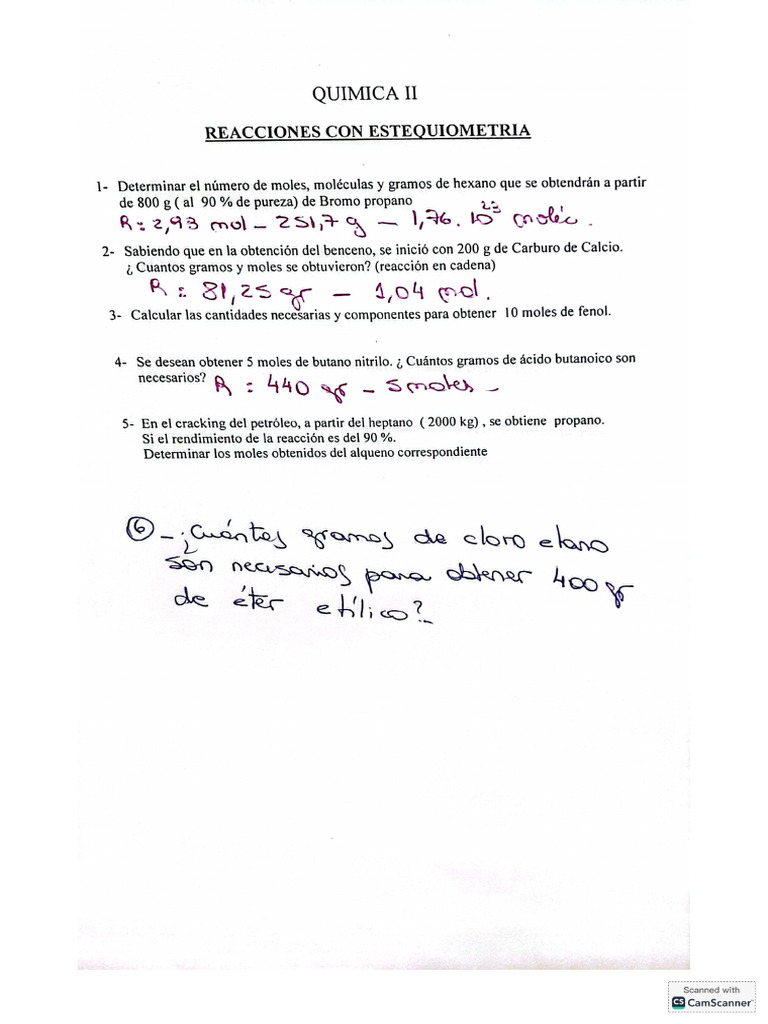 QUIMICA II
REACCIONES CON ESTEQUIOMETRIA
1- Determinar el número de moles, moléculas y gramos de hexano que se obtendrán a partir
de 800 g ( al 90 % de pureza) de Bromo propano
R = 2,93 mol - 251,7 g - 1,76. 10²³ moléc.
2- Sabiendo que en la obtención del benceno, se inició con 200 g de Carburo de Calcio.
¿ Cuantos gramos y moles se obtuvieron? (reacción en cadena)
R = 81,25 gr - 1,04 mol.
3- Calcular las cantidades necesarias y componentes para obtener 10 moles de fenol.
4- Se desean obtener 5 moles de butano nitrilo. ¿ Cuántos gramos de ácido butanoico son
necesarios? R = 440 gr - 5 moles -
5- En el cracking del petróleo, a partir del heptano ( 2000 kg) , se obtiene propano.
Si el rendimiento de la reacción es del 90 %.
Determinar los moles obtenidos del alqueno correspondiente
⑥ - ¿Cuántos gramos de cloro etano
son necesarios para obtener 400 gr
de éter etílico?_
Scanned with
CS CamScanner